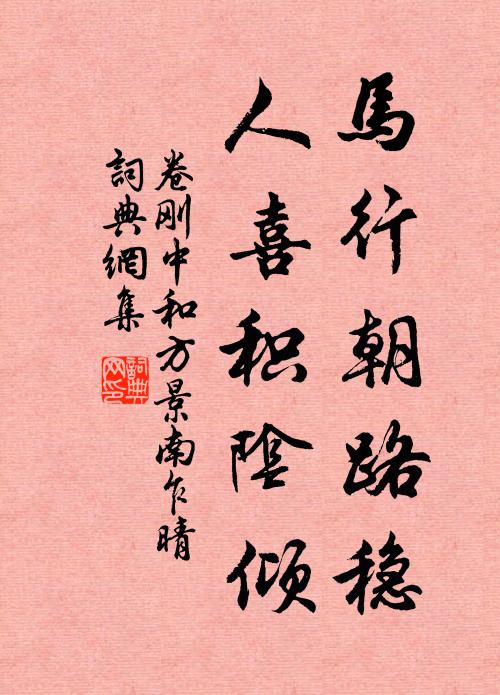 馬行朝路穩
人喜积陰傾
卷刚中和方景南乍晴
詞典網集
詞典
网印